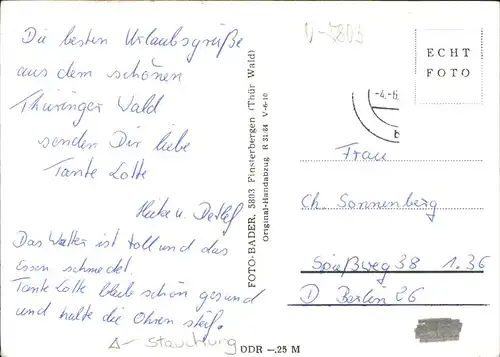 Die besten Urlaubsgrüße
aus dem schönen
Thüringer Wald
senden Dir liebe
Tante Lotte
Heike u. Detlef
Das Wetter ist toll und das
Essen schmeckt.
Tante Lotte bleib schön gesund
und halte die Ohren steif.
Δ- stauchung
FOTO-BADER, 5803 Finsterbergen (Thür Wald)
Original-Handabzug R 31/84 V-6-10
DDR -,25 M
D-5803
ECHT
FOTO
-4.-6.
Frau
Ch. Sonnenberg
Spießweg 38 1.36
D Berlin 26